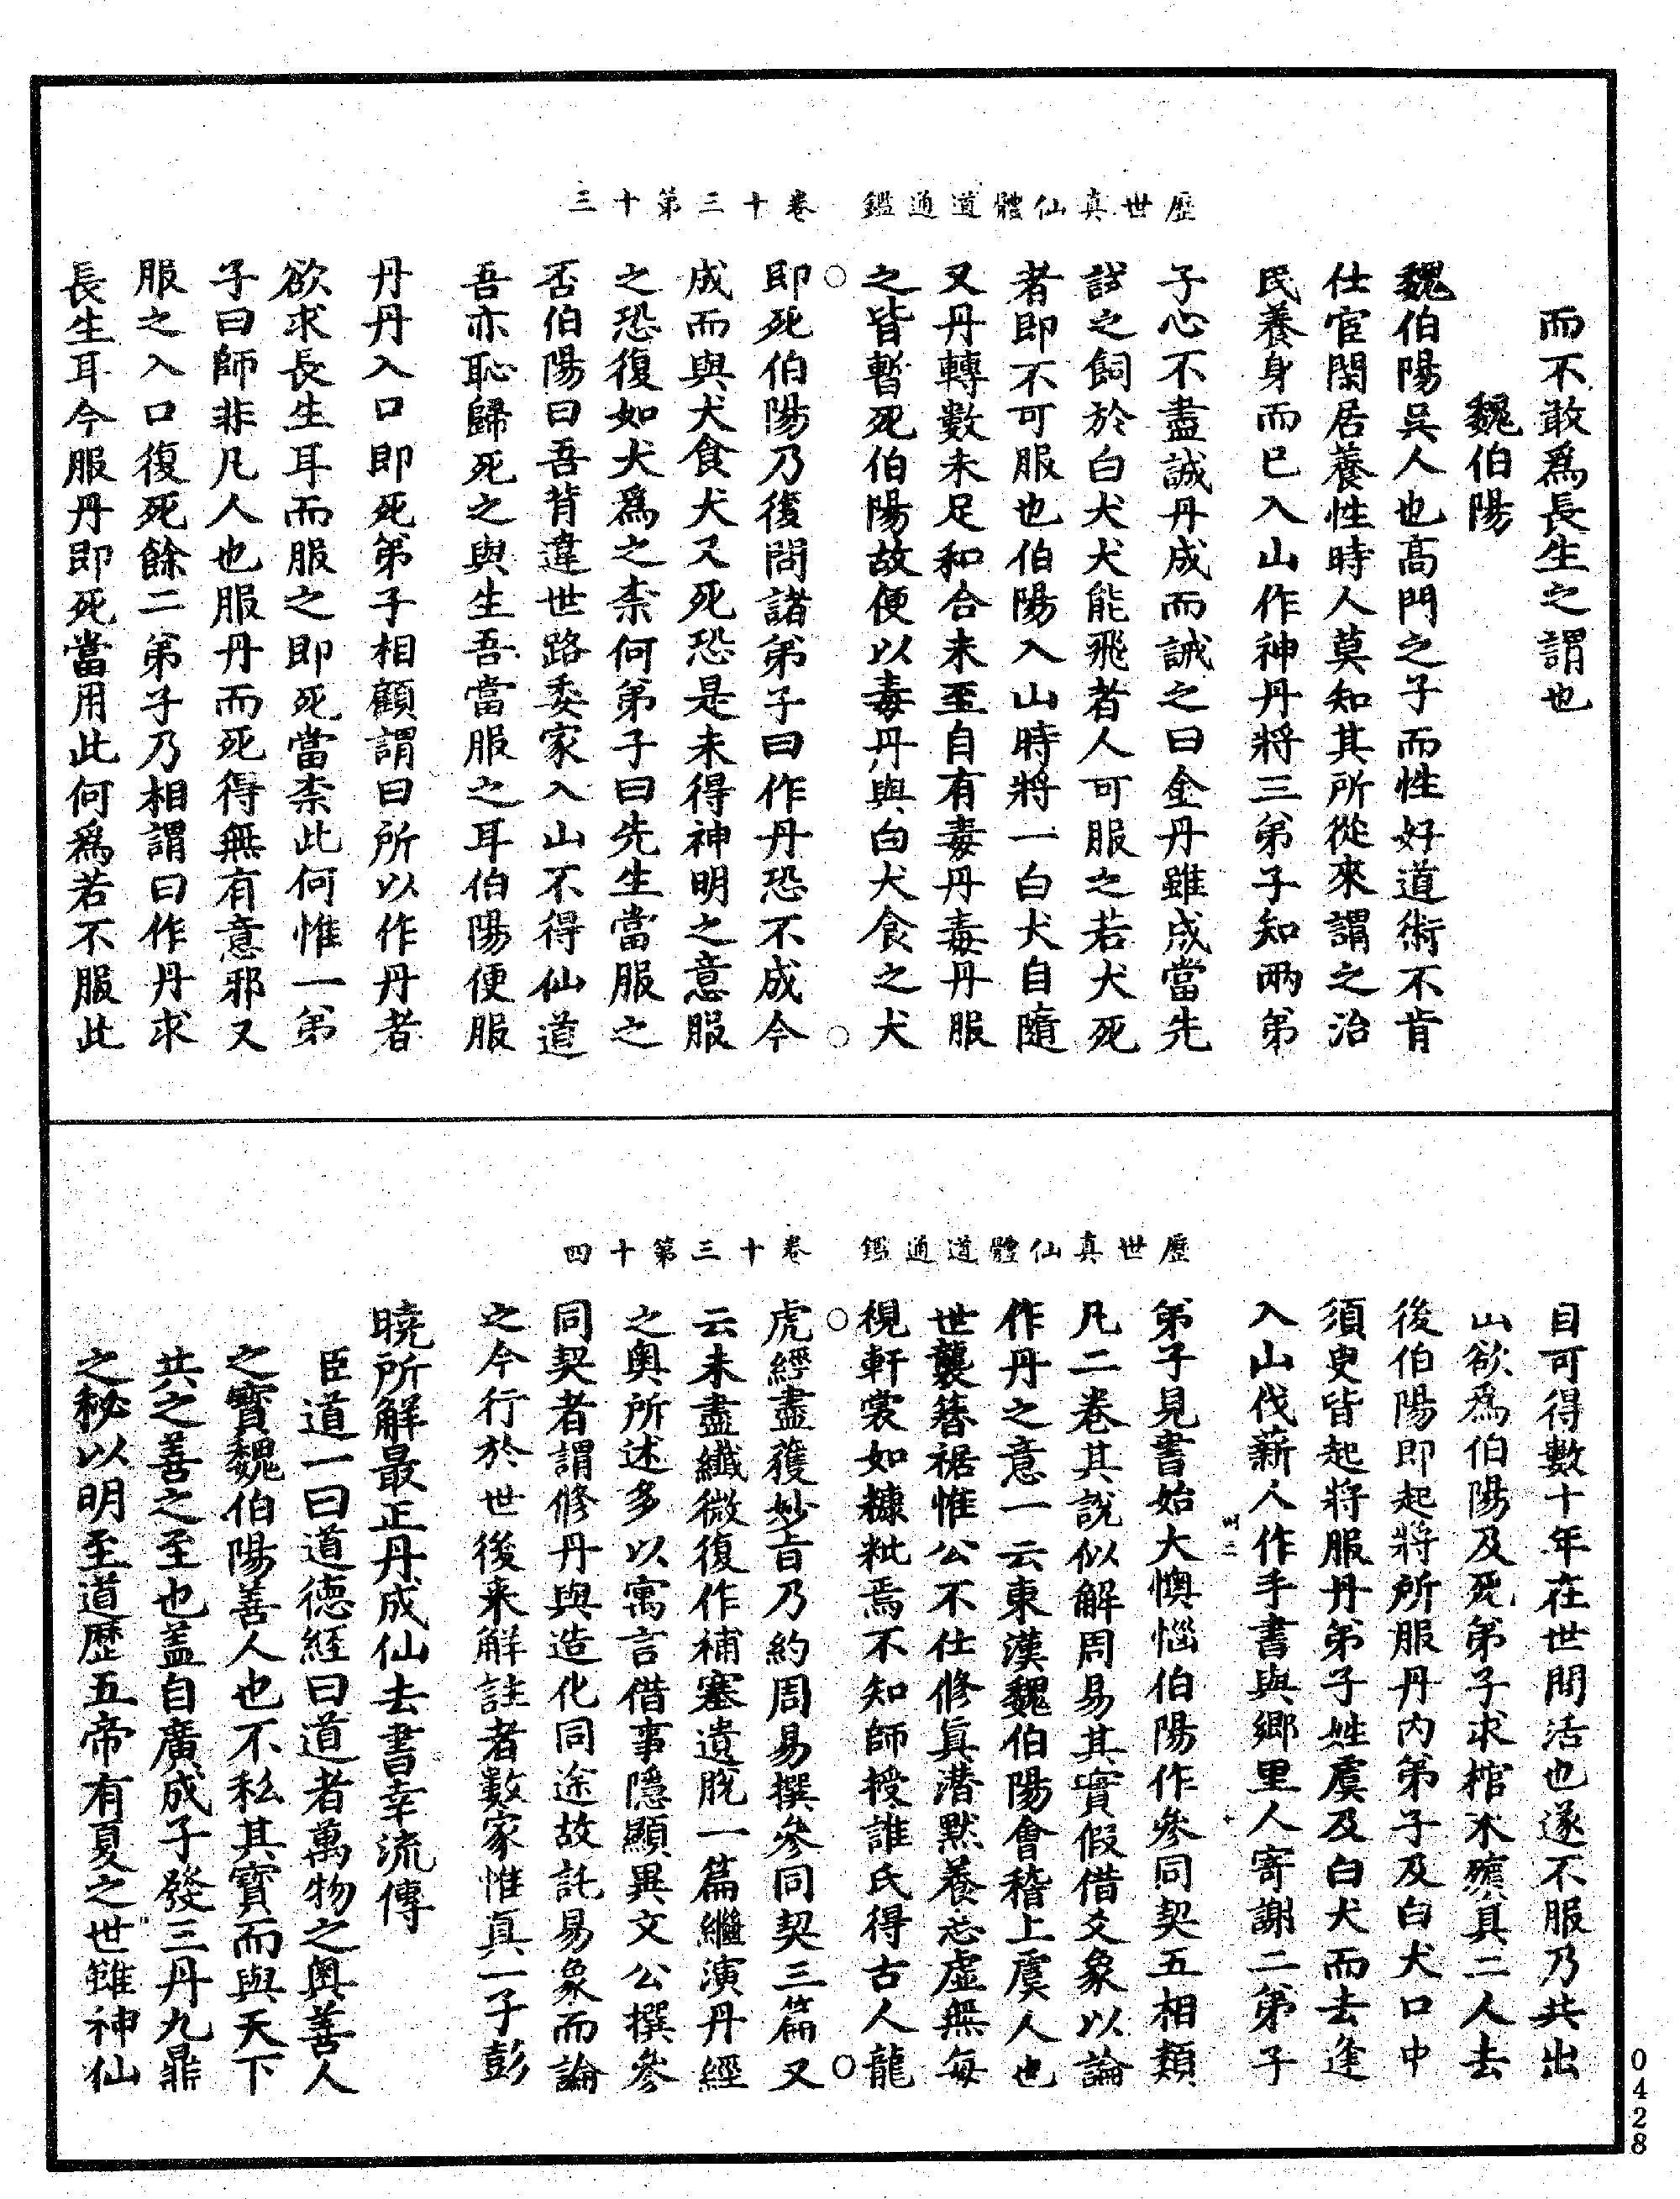 歷世真仙體道通鑑　卷十三第十三
而不敢爲長生之謂也
魏伯陽
魏伯陽吳人也高門之子而性好道術不肯
仕宦閑居養性時人莫知其所從來謂之治
民養身而已入山作神丹將三弟子知兩弟
子心不盡誠丹成而誡之曰金丹雖成當先
試之飼於白犬犬能飛者人可服之若犬死
者即不可服也伯陽入山時將一白犬自隨
又丹轉數未足和合未至自有毒丹毒丹服
之皆暫死伯陽故便以毒丹與白犬食之犬
即死伯陽乃復問諸弟子曰作丹恐不成今
成而與犬食犬又死恐是未得神明之意服
之恐復如犬爲之柰何弟子曰先生當服之
否伯陽曰吾背違世路委家入山不得仙道
吾亦恥歸死之與生吾當服之耳伯陽便服
丹丹入口即死弟子相顧謂曰所以作丹者
欲求長生耳而服之即死當柰此何惟一弟
子曰師非凡人也服丹而死得無有意邪又
服之入口復死餘二弟子乃相謂曰作丹求
長生耳今服丹即死當用此何爲若不服此
歷世真仙體道通鑑　卷十三第十四
自可得數十年在世間活也遂不服乃共出
山欲爲伯陽及死弟子求棺木殯具二人去
後伯陽即起將所服丹內弟子及白犬口中
須臾皆起將服丹弟子姓虞及白犬而去逢
入山伐薪人作手書與鄉里人寄謝二弟子
弟子見書始大懊惱伯陽作參同契五相類
凡二卷其說似解周易其實假借爻象以論
作丹之意一云東漢魏伯陽會稽上虞人也
世襲簪裾惟公不仕修真潛默養志虛無每
視軒裳如糠粃焉不知師授誰氏得古人龍
虎經盡獲妙旨乃約周易撰參同契三篇又
云未盡纖微復作補塞遺脫一篇繼演丹經
之奧所述多以寓言借事隱顯異文公撰參
同契者謂修丹與造化同途故託易象而論
之今行於世後來解註者數家惟真一子彭
曉所解最正丹成仙去書幸流傳
臣道一曰道德經曰道者萬物之奧善人
之寶魏伯陽善人也不私其寶而與天下
共之善之至也蓋自廣成子發三丹九鼎
之秘以明至道歷五帝有夏之世雖神仙
0428